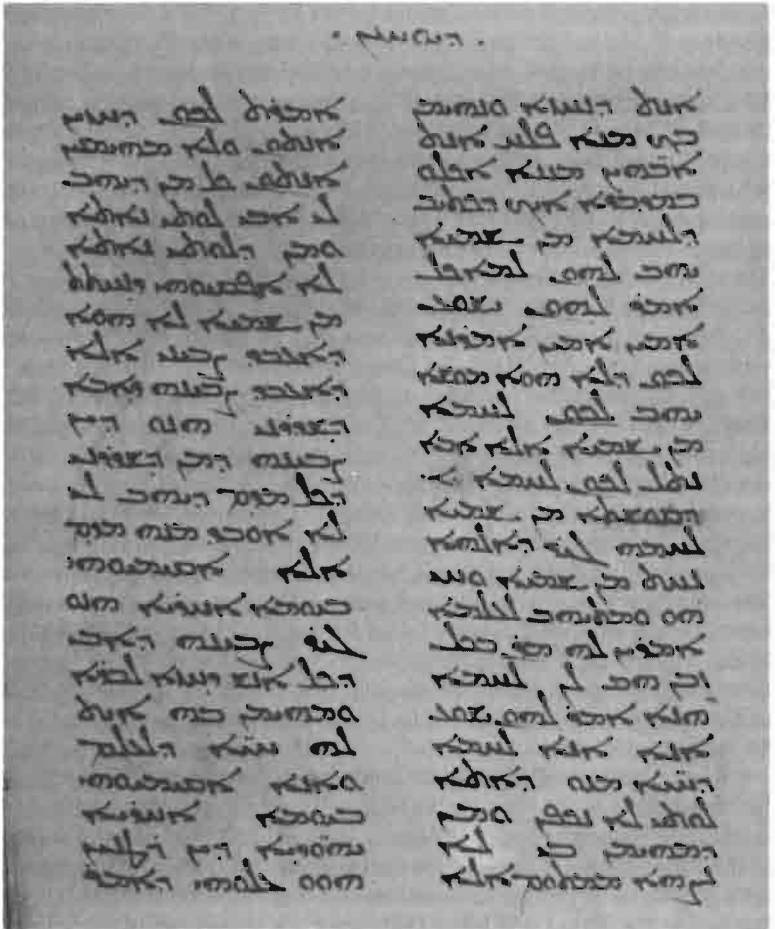 . ܕܝܘܚܢܢ .
ܐܢܬ ܕܢܚܙܐ ܘܢܗܝܡܢ
ܒܟ ܡܢܐ ܦܠܚ ܐܢܬ
ܐܒܗܝܢ ܡܢܢܐ ܐܟܠܘ
ܒܡܕܒܪܐ ܐܝܟ ܕܟܬܝܒ
ܕܠܚܡܐ ܡܢ ܫܡܝܐ
ܝܗܒ ܠܗܘܢ ܠܡܐܟܠ
ܐܡܪ ܠܗܘܢ ܝܫܘܥ
ܐܡܝܢ ܐܡܝܢ ܐܡܪܢܐ
ܠܟܘܢ ܕܠܐ ܗܘܐ ܡܘܫܐ
ܝܗܒ ܠܟܘܢ ܠܚܡܐ
ܡܢ ܫܡܝܐ ܐܠܐ ܐܒܐ
ܝܗܒ ܠܟܘܢ ܠܚܡܐ
ܕܩܘܫܬܐ ܡܢ ܫܡܝܐ
ܠܚܡܗ ܓܝܪ ܕܐܠܗܐ
ܢܚܬ ܡܢ ܫܡܝܐ ܘܚܝܐ
ܗܘ ܝܗܒ ܠܥܠܡܐ
ܐܡܪܝܢ ܠܗ ܡܪܝ ܒܟܠ
ܙܒܢ ܗܒ ܠܢ ܠܚܡܐ
ܗܢܐ ܐܡܪ ܠܗܘܢ ܝܫܘܥ
ܐܢܐ ܐܢܐ ܠܚܡܐ
ܕܚܝܐ ܡܢ ܕܐܬܐ
ܠܘܬܝ ܠܐ ܢܟܦܢ ܘܡܢ
ܕܡܗܝܡܢ ܒܝ ܠܐ
ܢܨܗܐ ܡܡܬܘܡ ܐܠܐ
ܐܡܪܬ ܠܟܘܢ ܕܚܙܝܢ
ܐܢܬܘܢ ܘܠܐ ܡܗܝܡܢܝܢ
ܐܢܬܘܢ ܟܠ ܡܢ ܕܝܗܒ
ܠܝ ܐܒܝ ܠܘܬܝ ܢܐܬܐ
ܘܡܢ ܕܠܘܬܝ ܢܐܬܐ
ܠܐ ܐܦܩܝܘܗܝ ܕܢܚܬܬ
ܡܢ ܫܡܝܐ ܠܐ ܗܘܐ
ܕܐܥܒܕ ܨܒܝܢܝ ܐܠܐ
ܕܐܥܒܕ ܨܒܝܢܗ ܕܐܒܐ
ܕܫܕܪܢܝ ܗܢܘ ܕܝܢ
ܨܒܝܢܗ ܕܡܢ ܕܫܕܪܢܝ
ܕܟܠ ܡܕܡ ܕܝܗܒ ܠܝ
ܠܐ ܐܘܒܕ ܡܢܗ ܡܕܡ
ܐܠܐ ܐܩܝܡܝܘܗܝ
ܒܝܘܡܐ ܐܚܪܝܐ ܗܢܘ
ܓܝܪ ܨܒܝܢܗ ܕܐܒܝ
ܕܟܠ ܐܢܫ ܕܚܙܐ ܠܒܪܐ
ܘܡܗܝܡܢ ܒܗ ܐܝܬ
ܠܗ ܚܝܐ ܕܠܥܠܡ
ܘܐܢܐ ܐܩܝܡܝܘܗܝ
ܒܝܘܡܐ ܐܚܪܝܐ
ܝܗܘܕܝܐ ܕܝܢ ܪܛܢܝܢ
ܗܘܘ ܥܠܘܗܝ ܕܐܡܪ